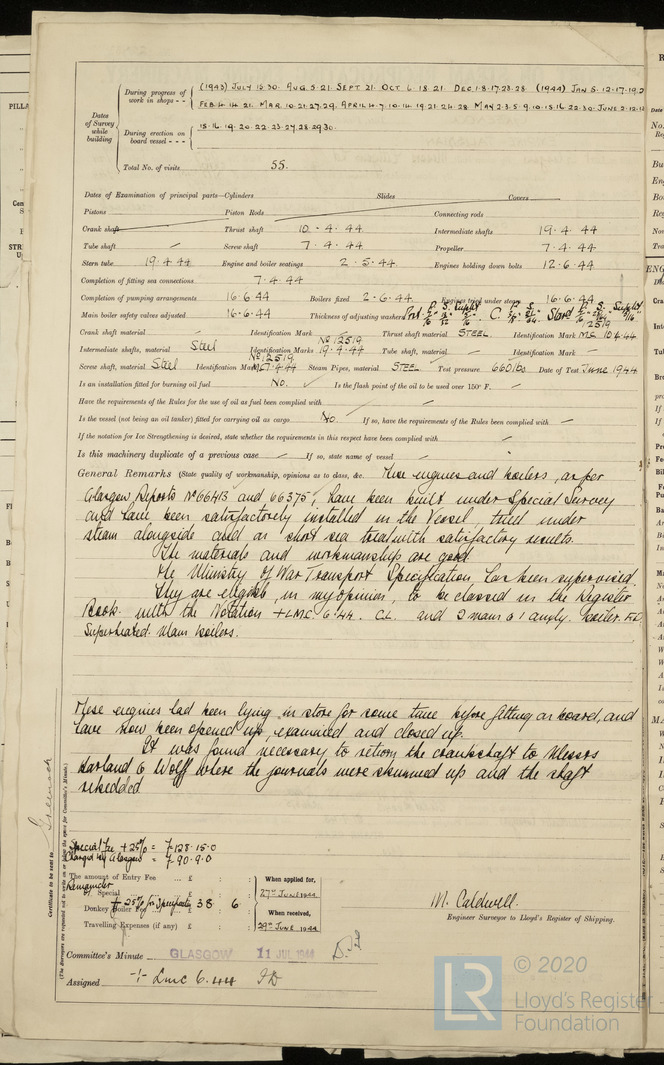 During progress of work in shops - - (1943) JULY 12.30. AUG 5.21. SEPT. 21. OCT. 6.18.21. DEC. 1.8.17.23.28. (1944) JAN 5.12.17.19.2
FEB 4.14.21. MAR. 10.21.27.29. APRIL 4.7.10.14.19.21.24.28. MAY 2.3.5.9.10.15.16.22.30. JUNE 2.12.13
Dates of Survey while building
During erection on board vessel - - - 15.16.19.20.22.23.27.28.29.30.
Total No. of visits 55.
Dates of Examination of principal parts—Cylinders Slides Covers
Pistons Piston Rods Connecting rods
Crank shaft Thrust shaft 10.4.44 Intermediate shafts 19.4.44
Tube shaft Screw shaft 7.4.44 Propeller 7.4.44
Stern tube 19.4.44 Engine and boiler seatings 2.5.44 Engines holding down bolts 12.6.44
Completion of fitting sea connections 7.4.44
Completion of pumping arrangements 16.6.44 Boilers fixed 2.6.44 Engines tried under steam 16.6.44
Main boiler safety valves adjusted 16.6.44 Thickness of adjusting washers
Crank shaft material Identification Mark Thrust shaft material STEEL. Identification Mark 2519 MC 10.4.44
Intermediate shafts, material Steel Identification Marks No 12519 19.4.44 Tube shaft, material Identification Mark
Screw shaft, material Steel Identification Mark No 12519 MC 7.4.44 Steam Pipes, material STEEL Test pressure 660 lbs. Date of Test June 1944
Is an installation fitted for burning oil fuel No. Is the flash point of the oil to be used over 150° F.
Have the requirements of the Rules for the use of oil as fuel been complied with
Is the vessel (not being an oil tanker) fitted for carrying oil as cargo No If so, have the requirements of the Rules been complied with
If the notation for Ice Strengthening is desired, state whether the requirements in this respect have been complied with
Is this machinery duplicate of a previous case If so, state name of vessel
General Remarks (State quality of workmanship, opinions as to class, &c. These engines and boilers, as per
Glasgow Reports No 66413 and 66375, have been built under Special Survey
and have been satisfactorily installed in the Vessel, tried under
steam alongside and on short sea trial with satisfactory results.
The materials and workmanship are good.
The Ministry Of War Transport Specification has been supervised.
They are eligible, in my opinion, to be classed in the Register
Book with the Notation +LMC. 6.44. C.L. and 2 main & 1 auxly. boiler. F.D.
Superheated. Main boilers.
These engines had been lying in store for some time before fitting on board, and
have now been opened up, examined and closed up.
It was found necessary to return the crankshaft to Messrs
Harland & Wolff where the journals were skimmed up and the shaft
rebedded
Certificate to be sent to Greenock
(The Surveyors are requested not to write on or below the space for Committee's Minute.)
Special Fee + 25% = £128.15.0
Charged by Glasgow = £90.9.0
The amount of Entry Fee ... £ : :
Remainder of Special ... £ : :
+ 25% for Specification 38 6
Donkey Boiler Fee ... £ : :
Travelling Expenses (if any) £ : :
When applied for,
27th JUNE 1944
When received,
29th JUNE 1944
M. Caldwell.
Engineer Surveyor to Lloyd's Register of Shipping.
Committee's Minute GLASGOW 11 JUL 1944
Assigned + LMC 6.44 FD
LR
© 2020
Lloyd's Register
Foundation